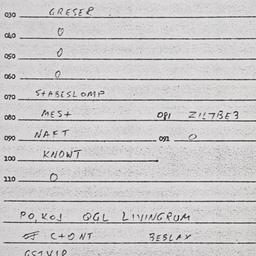 030 GRESER
040 0
050 0
060 0
070 STABESLOMP
080 MEST 081 ZILTBE3
090 NAFT 091 0
100 KNOWT
110 0
PO, KOJ QGL LIVINGRUM
CTONT BEBLAY